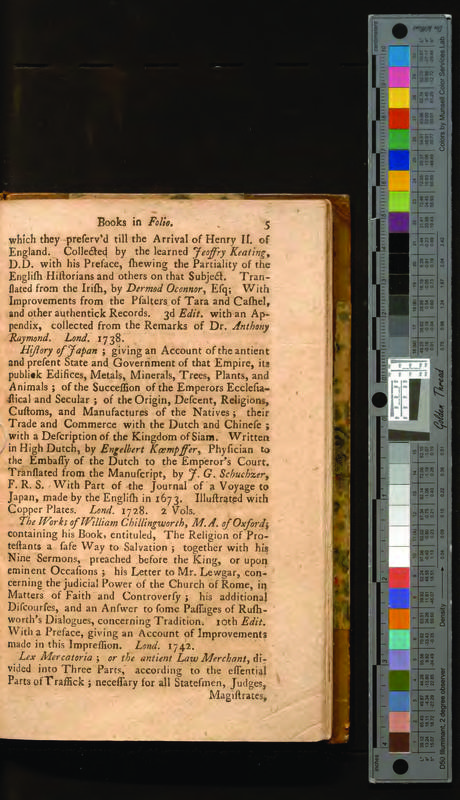 Books in Folio. 5
which they preſerv'd till the Arrival of Henry II. of
England. Collected by the learned Jeoffry Keating,
D.D. with his Preface, ſhewing the Partiality of the
Engliſh Hiſtorians and others on that Subject. Tran-
ſlated from the Iriſh, by Dermod Oconnor, Eſq; With
Improvements from the Pſalters of Tara and Caſhel,
and other authentick Records. 3d Edit. with an Ap-
pendix, collected from the Remarks of Dr. Anthony
Raymond. Lond. 1738.
Hiſtory of Japan ; giving an Account of the antient
and preſent State and Government of that Empire, its
publick Edifices, Metals, Minerals, Trees, Plants, and
Animals ; of the Succeſſion of the Emperors Eccleſia-
ſtical and Secular ; of the Origin, Deſcent, Religions,
Cuſtoms, and Manufactures of the Natives ; their
Trade and Commerce with the Dutch and Chineſe ;
with a Deſcription of the Kingdom of Siam. Written
in High Dutch, by Engelbert Kœmpffer, Phyſician to
the Embaſſy of the Dutch to the Emperor's Court.
Tranſlated from the Manuſcript, by J. G. Schuchzer,
F. R. S. With Part of the Journal of a Voyage to
Japan, made by the Engliſh in 1673. Illuſtrated with
Copper Plates. Lond. 1728. 2 Vols.
The Works of William Chillingworth, M. A. of Oxford;
containing his Book, entituled, The Religion of Pro-
teſtants a ſafe Way to Salvation ; together with his
Nine Sermons, preached before the King, or upon
eminent Occaſions ; his Letter to Mr. Lewgar, con-
cerning the judicial Power of the Church of Rome, in
Matters of Faith and Controverſy ; his additional
Diſcourſes, and an Anſwer to ſome Paſſages of Ruſh-
worth's Dialogues, concerning Tradition. 10th Edit.
With a Preface, giving an Account of Improvements
made in this Impreſſion. Lond. 1742.
Lex Mercatoria ; or the antient Law Merchant, di-
vided into Three Parts, according to the eſſential
Parts of Traffick ; neceſſary for all Stateſmen, Judges,
Magiſtrates,
Colors by Munsell Color Services Lab
Golden Thread
Density
D50 Illuminant, 2 degree observer
inches
centimeters